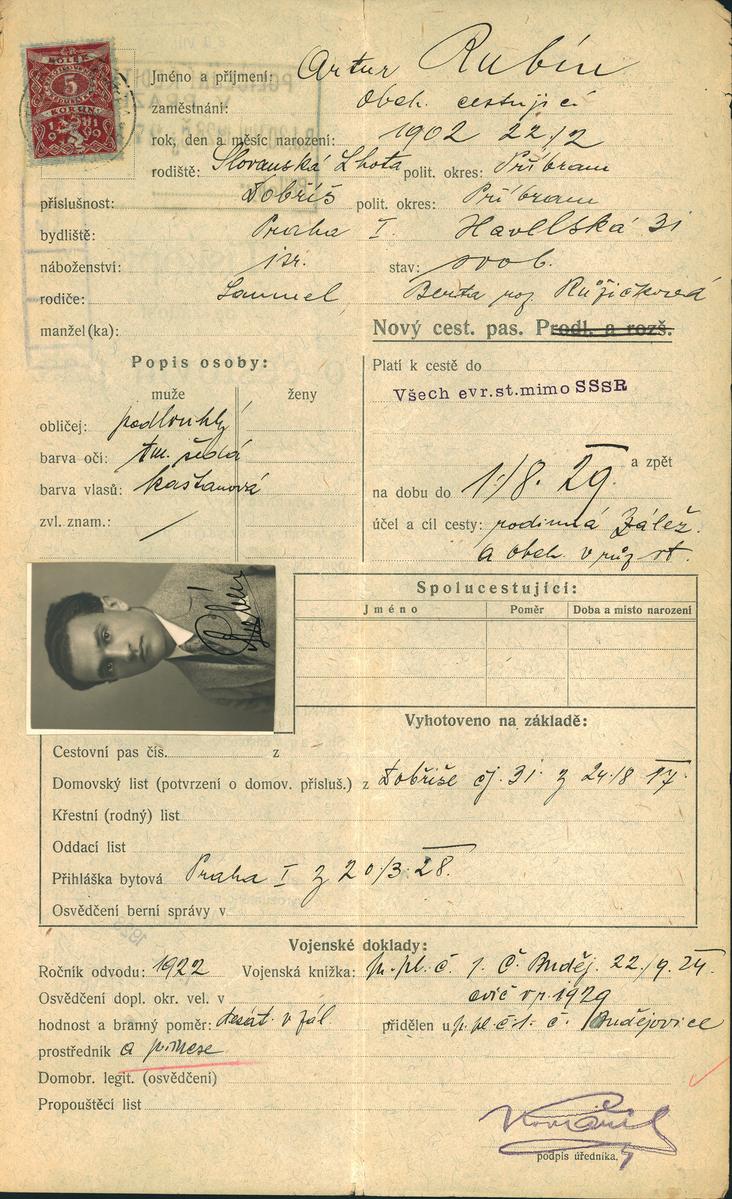 5
KORUN
Jméno a příjmení: Artur Rubín
zaměstnání: obch. cestující
rok, den a měsíc narození: 1902 22./2
rodiště: Slovanská Lhota polit. okres: Příbram
příslušnost: Dobříš polit. okres: Příbram
bydliště: Praha I. Havelská 31
náboženství: isr. stav: svob.
rodiče: Samuel, Berta roz. Růžičková
manžel(ka):
Nový cest. pas. Prodl. a rozš.
Popis osoby:
muže ženy
obličej: podlouhlý
barva očí: tm. šedá
barva vlasů: kaštanová
zvl. znam.: /
Platí k cestě do
Všech evr. st. mimo SSSR
a zpět
na dobu do 1./8. 29.
účel a cíl cesty: rodinná zálež.
a obch. v růz. st.
Spolucestující:
Jméno Poměr Doba a místo narození
Vyhotoveno na základě:
Cestovní pas čís. z
Domovský list (potvrzení o domov. přísluš.) z Dobříše čj. 31. z 24./8 17.
Křestní (rodný) list
Oddací list
Přihláška bytová Praha I z 20./3. 28.
Osvědčení berní správy v
Vojenské doklady:
Ročník odvodu: 1922 Vojenská knížka: p. pl. č. 1. Č. Buděj. 22./9. 24.
Osvědčení dopl. okr. vel. v cvič. v r. 1929
hodnost a branný poměr: desát. v zál přidělen u p. pl. č. 1. Č. Budějovice
prostředník a
Domobr. legit. (osvědčení)
Propouštěcí list
podpis úředníka.